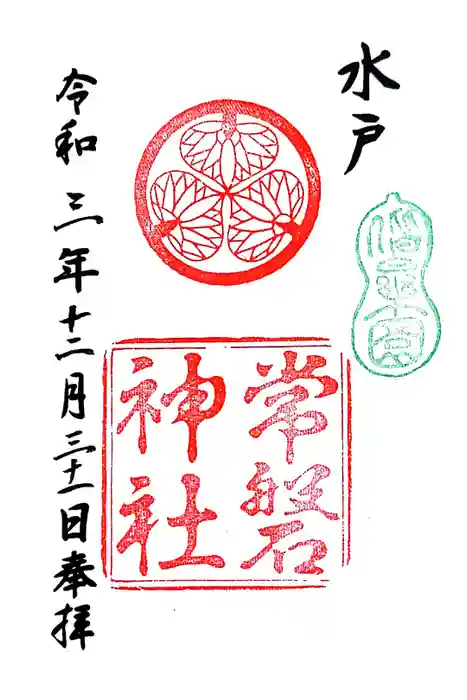 水戸
常磐
神社
令和三年十二月三十一日奉拝